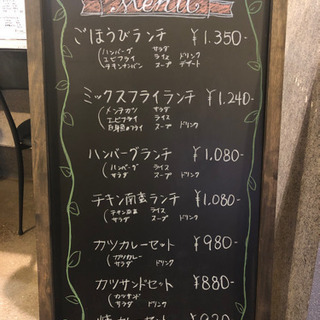 Menu
ごほうびランチ ¥1.350-
(ハンバーグ サラダ ドリンク
エビフライ ライス デザート
チキンナンバン スープ
ミックスフライランチ ¥1.240-
(メンチカツ サラダ
エビフライ ライス
白身魚のフライ スープ ドリンク
ハンバーグランチ ¥1,080-
(ハンバーグ ライス
サラダ スープ ドリンク
チキン南蛮ランチ ¥1,080-
(チキン南蛮 ライス
サラダ スープ ドリンク
カツカレーセット ¥980-
(カツカレー
サラダ ドリンク
カツサンドセット ¥880-
(カツサンド
サラダ ドリンク